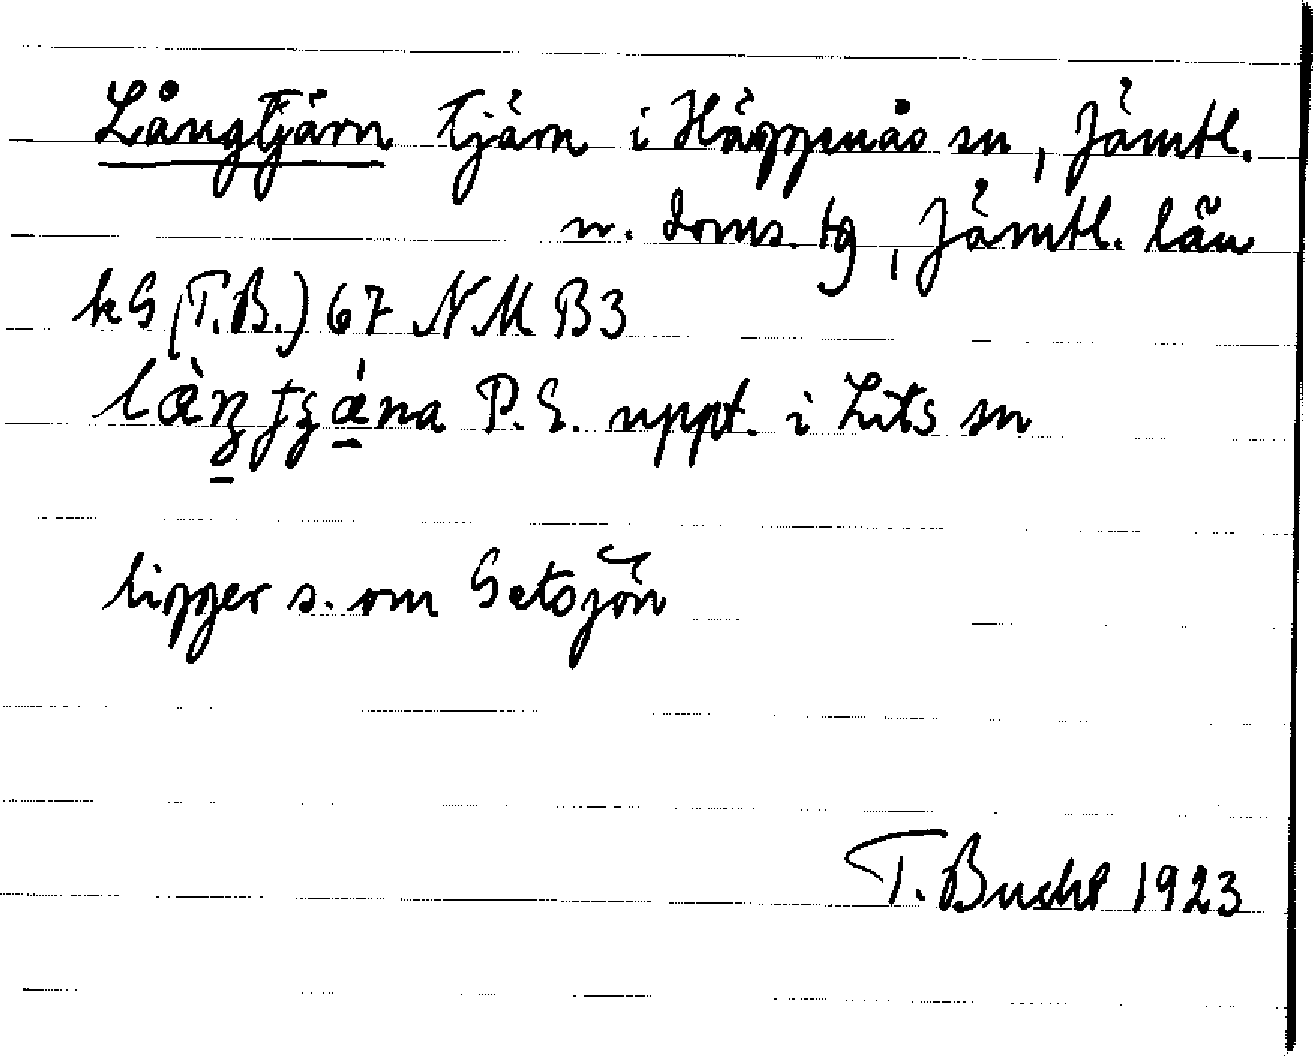 Långtjärn tjärn i Häggenås sn, Jämtl.
n. doms. tg, Jämtl. län
kG (T.B.) 67 NM B3
P.E. uppt. i Lits sn
ligger s. om Getsjön
T. Bucht 1923